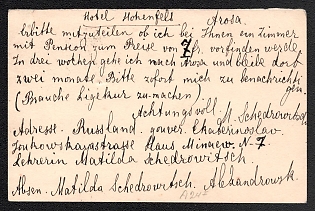 Hotel Hohenfels Arosa.
Erbitte mitzuteilen ob ich bei Ihnen ein zimmer
mit Pension zum Preise von 7 fr. vorfinden werde.
In drei wochen gehe ich nach Arosa und bleibe dort
zwei monate. Bitte sofort mich zu benachrichti
gen.
(Brauche Ligekur zu machen)
Achtungsvoll M. Schedrowitsch
Adresse. Russland. gouver. Ekaterinoslav.
Haus Minaew. N. 7
Lehrerin Matilda Schedrowitsch.
Absen. Matilda Schedrowitsch. Alexandrowsk.